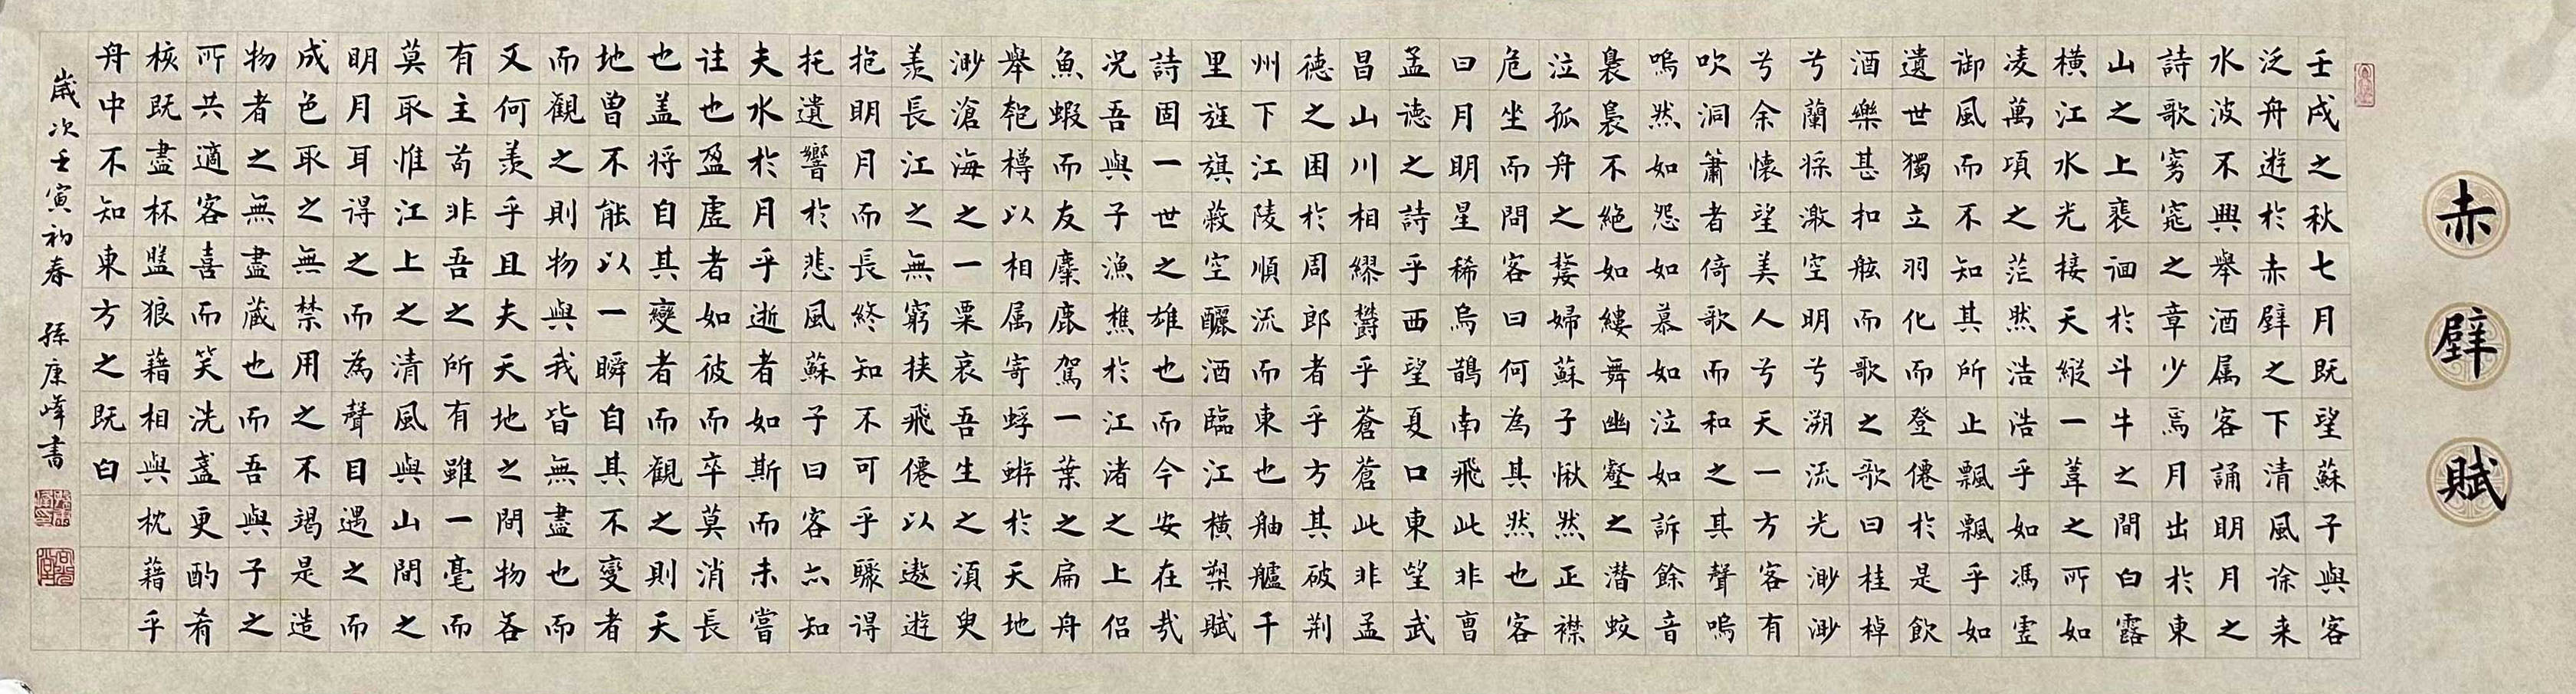 赤壁賦
壬戌之秋七月既望蘇子與客
泛舟遊於赤壁之下清風徐来
水波不興舉酒属客誦明月之
詩歌窈窕之章少焉月出於東
山之上裴徊於斗牛之間白露
横江水光接天縱一葦之所如
凌萬頃之茫然浩浩乎如馮虛
御風而不知其所止飄飄乎如
遺世獨立羽化而登僊於是飲
酒樂甚扣舷而歌之歌曰桂棹
兮蘭槳激空明兮溯流光渺渺
兮余懷望美人兮天一方客有
吹洞簫者倚歌而和之其聲嗚
嗚然如怨如慕如泣如訴餘音
裊裊不絶如縷舞幽壑之潜蛟
泣孤舟之嫠婦蘇子愀然正襟
危坐而問客曰何為其然也客
曰月明星稀烏鵲南飛此非曹
孟德之詩乎西望夏口東望武
昌山川相繆鬱乎蒼蒼此非孟
德之困於周郎者乎方其破荆
州下江陵順流而東也舳艫千
里旌旗蔽空釃酒臨江横槊賦
詩固一世之雄也而今安在哉
况吾與子漁樵於江渚之上侣
魚蝦而友麋鹿駕一葉之扁舟
舉匏樽以相属寄蜉蝣於天地
渺滄海之一粟哀吾生之須臾
羨長江之無窮挟飛僊以遨遊
抱明月而長終知不可乎驟得
托遺響於悲風蘇子曰客亦知
夫水於月乎逝者如斯而未嘗
往也盈虛者如彼而卒莫消長
也盖将自其變者而觀之則天
地曾不能以一瞬自其不變者
而觀之則物與我皆無盡也而
又何羨乎且夫天地之間物各
有主苟非吾之所有雖一毫而
莫取惟江上之清風與山間之
明月耳得之而為聲目遇之而
成色取之無禁用之不竭是造
物者之無盡蔵也而吾與子之
所共適客喜而笑洗盞更酌肴
核既盡杯盤狼藉相與枕藉乎
舟中不知東方之既白
歲次壬寅初春 孫康峰書